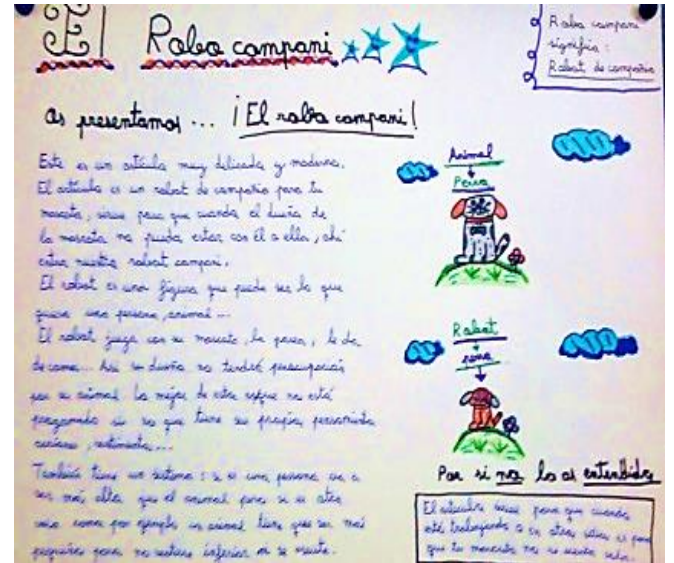 El Robo campani
Robo campani
significa:
Robot de compañia
Os presentamos ... ¡El robo campani!
Este es un articulo muy delicado y moderno.
El articulo es un robot de compañia para tu
mascota, sirve para que cuando el dueño de
la mascota no pueda estar con él o ella, ahi
entra nuestro robot campani.
El robot es una figura que puede ser lo que
quiera una persona, animal...
El robot juega con su mascota, la pasea, le da
de comer... Asi su dueño no tendrá preocupación
por su animal lo mejor de esto es que no está
programado si no que tiene su propio pensamiento
sentimiento...
También tiene un sistema: si es una persona va a
ser más alta que el animal pero si es otra
cosa como por ejemplo un animal tiene que ser más
pequeño para no sentirse inferior ni se asuste.
Animal
Perro
Robot
perro
Por si no lo as entendido
El articulo sirve para que cuando
esté trabajando o en otros sitios es para
que tu mascota no se sienta sola.